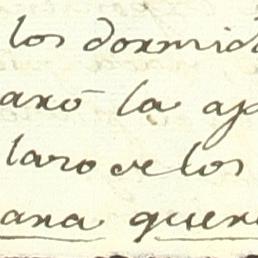 los dormid
aró la ap
laro de los
ana quer